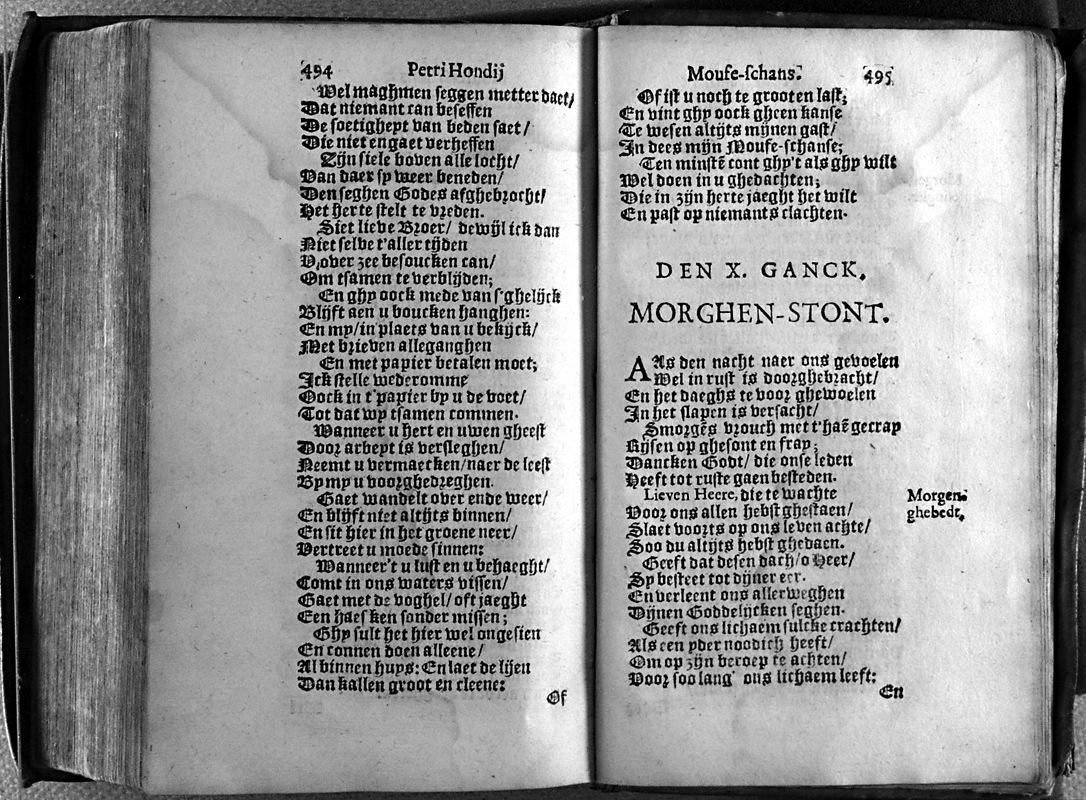 494 Petri Hondij
Wel maghmen seggen metter daet/
Dat niemant can beseffen
De soetigheyt van beden saet/
Die niet en gaet verheffen
Zijn siele boven alle locht/
Van daer sy weer beneden/
Den seghen Godes afghebrocht/
Het herte stelt te vreden.
Siet lieve Broer/ dewijl ick dan
Niet selve t'aller tijden
V, over zee besoucken can/
Om tsamen te verblijden;
En ghy oock mede van s'ghelijck
Blijft aen u boucken hanghen:
En my/in plaets van u bekijck/
Met brieven alleganghen
En met papier betalen moet;
Ick stelle wederomme
Oock in t'papier by u de voet/
Tot dat wy tsamen commen.
Wanneer u hert en uwen gheest
Door arbeyt is versleghen/
Neemt u vermaecken/naer de leest
By my u voorghedreghen.
Gaet wandelt over ende weer/
En blijft niet altijts binnen/
En sit hier in het groene neer/
Vertreet u moede sinnen:
Wanneer't u lust en u behaeght/
Comt in ons waters vissen/
Gaet met de voghel/ oft jaeght
Een haes ken sonder missen;
Ghy sult het hier wel ongesien
En connen doen alleene/
Al binnen huys: En laet de lien
Dan kallen groot en cleene:
Of
Mouse-schans. 495
Of ist u noch te grooten last;
En vint ghy oock gheen kanse
Te wesen altijts mijnen gast/
In dees mijn Mouse-schanse;
Ten minstē cont ghy't als ghy wilt
Wel doen in u ghedachten;
Die in zijn herte jaeght het wilt
En past op niemants clachten.
DEN X. GANCK.
MORGHEN-STONT.
AAs den nacht naer ons gevoelen
Wel in rust is doorghebracht/
En het daeghs te voor ghewoelen
In het slapen is versacht/
Smorgēs vrouch met t'haē gecrap
Rijsen op ghesont en fray;
Dancken Godt/ die onse leden
Heeft tot ruste gaen besteden.
Lieven Heere, die te wachte
Voor ons allen hebst ghestaen/
Slaet voorts op ons leven achte/
Soo du altijts hebst ghedaen.
Geeft dat desen dach/o Heer/
Sy besteet tot dijner eer.
En verleent ons allerweghen
Dijnen Goddelijcken seghen.
Geeft ons lichaem sulcke crachten/
Als een yder noodich heeft/
Om op zijn beroep te achten/
Voor soo lang' ons lichaem leeft:
En
Morgen-
ghebedt.